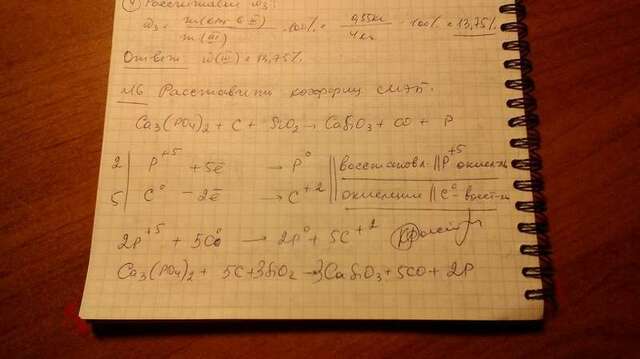 4) Рассчитаем ω₃
ω₃ = m(in-т в III) / m(III) · 100% = 0,55кг / 4кг · 100% = 13,75%
Ответ: ω(III) = 13,75%
N6 Расставить коэффиц
Ca₃(PO₄)₂ + C + SiO₂ → CaSiO₃ + CO + P
2 | P⁺⁵ +5ē → P⁰ || восстановл. || P⁺⁵ окисл-ль
5 | C⁰ -2ē → C⁺² || окисление || C⁰ - восст-ль
2P⁺⁵ + 5C⁰ → 2P⁰ + 5C⁺²
Ca₃(PO₄)₂ + 5C + 3SiO₂ → 3CaSiO₃ + 5CO + 2P